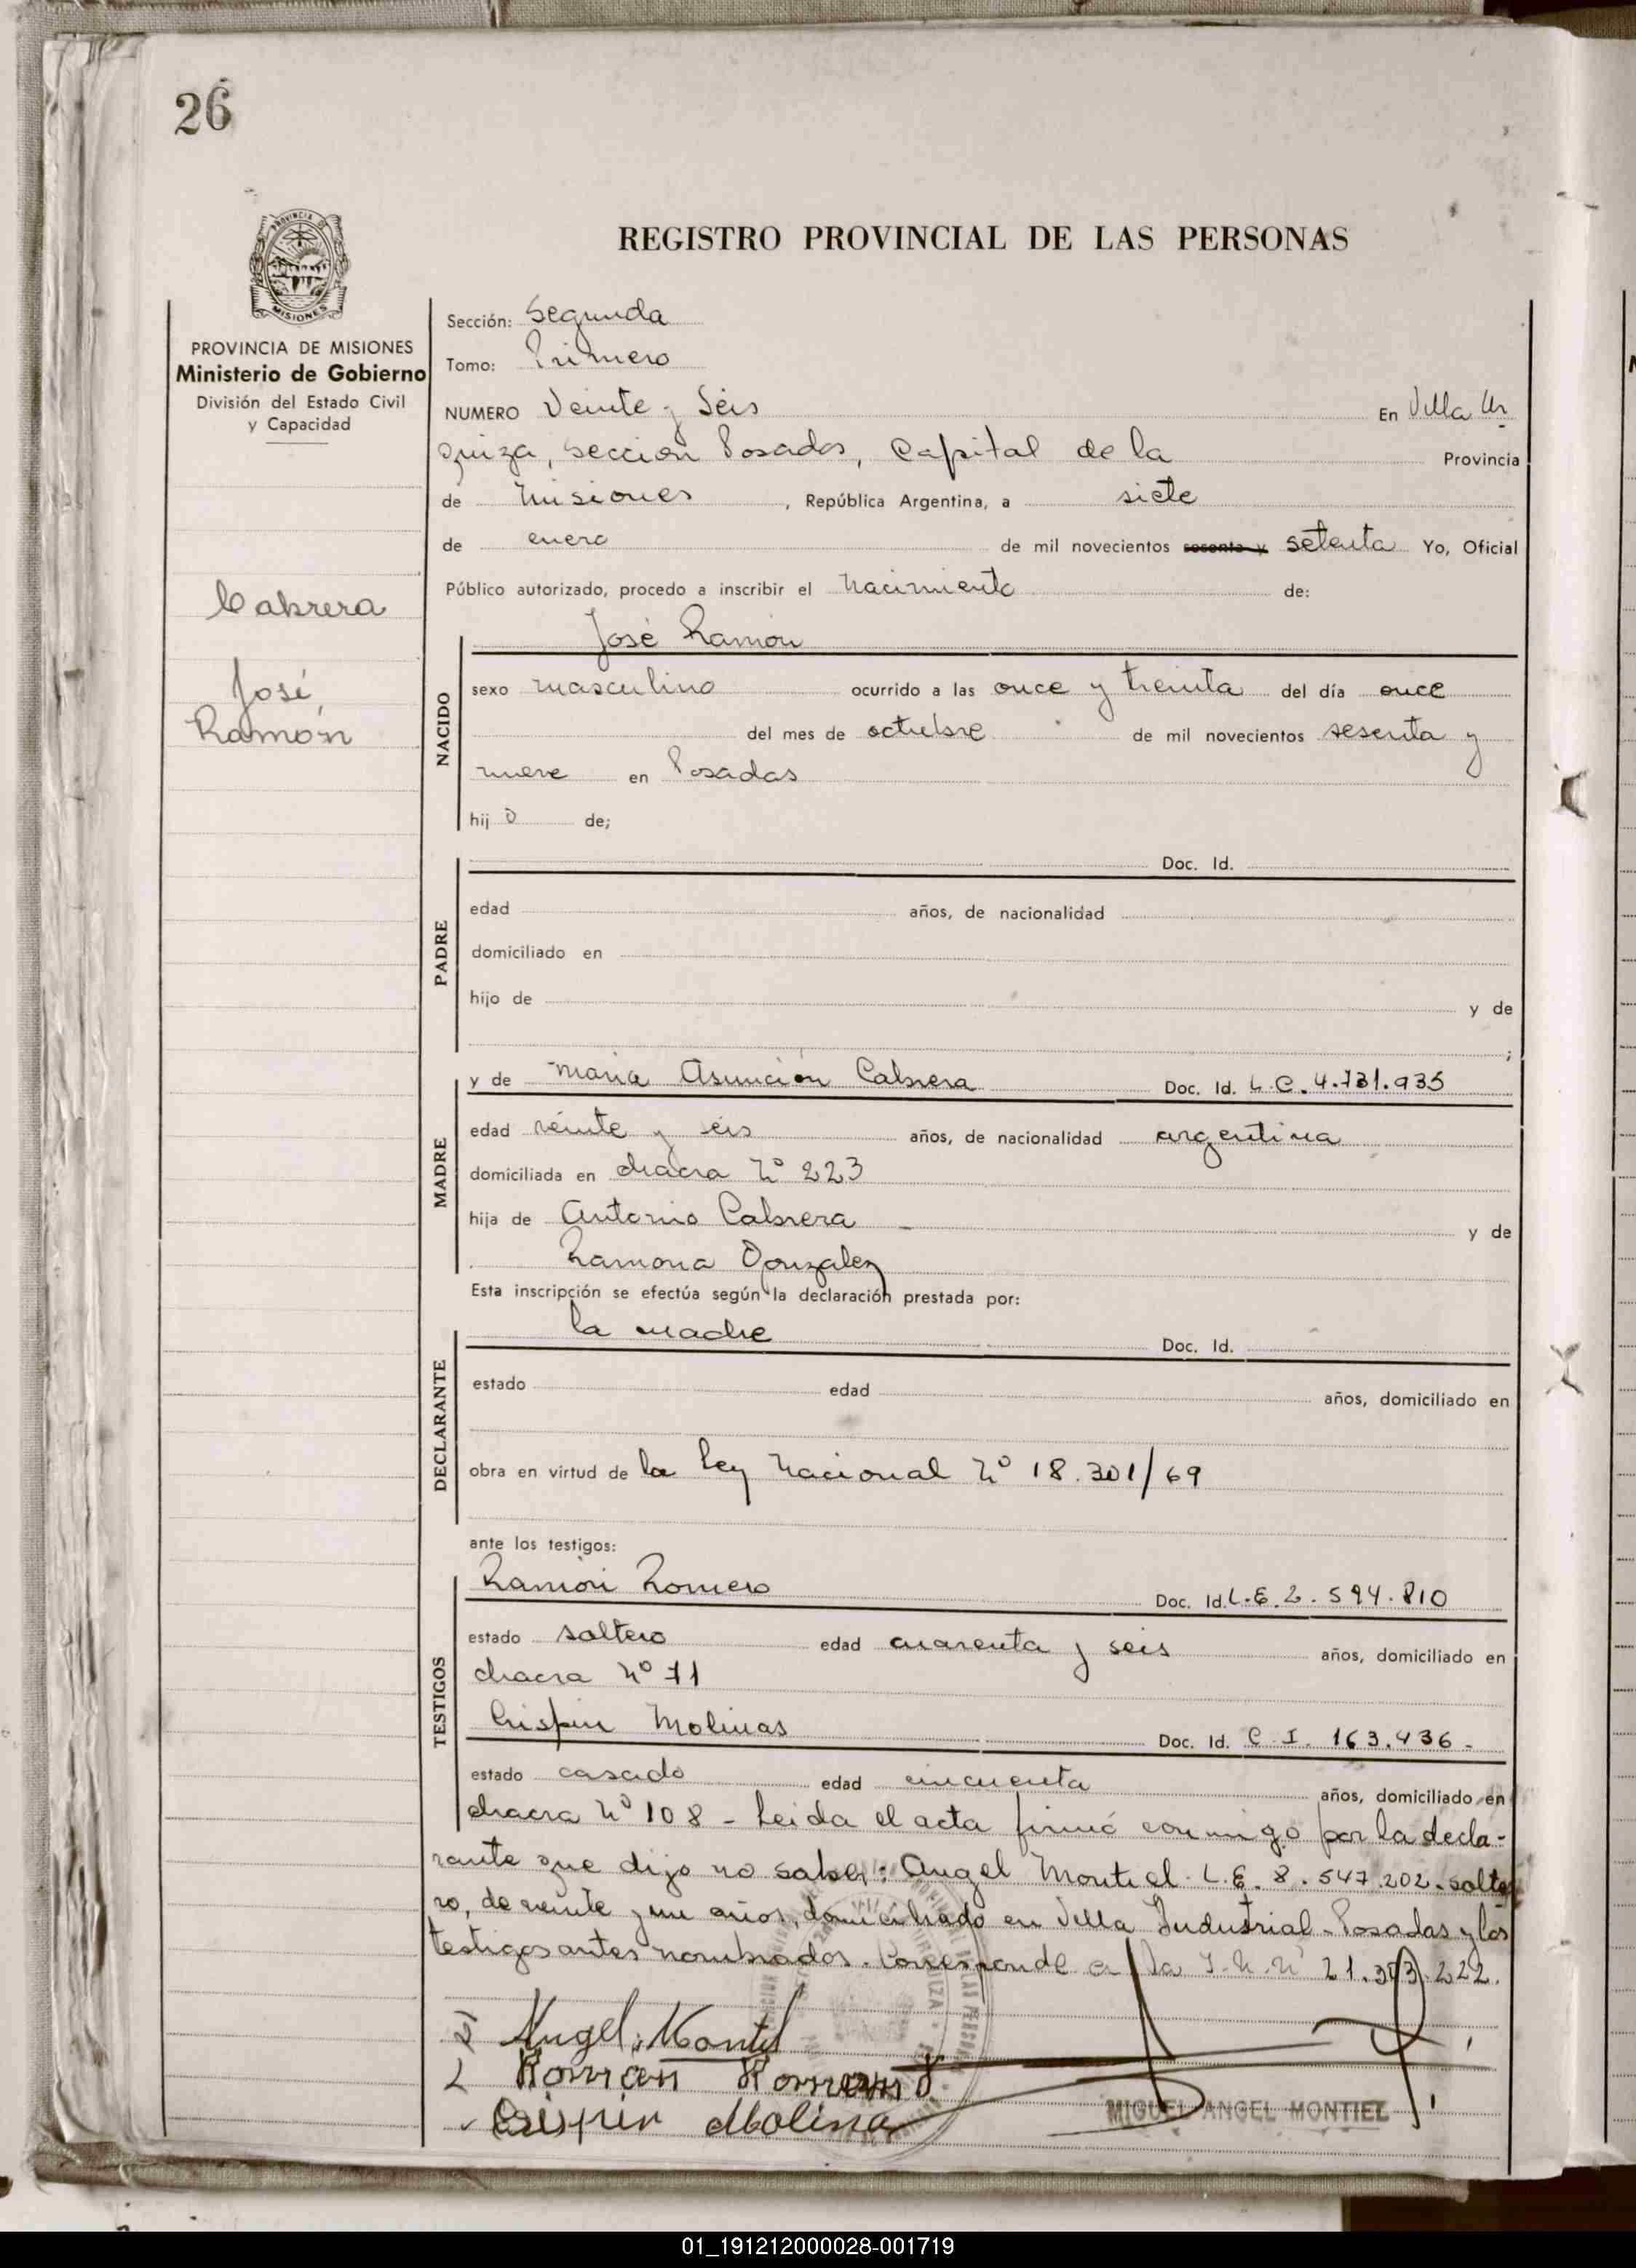 26
PROVINCIA DE
MISIONES
REGISTRO PROVINCIAL DE LAS PERSONAS
PROVINCIA DE MISIONES
Ministerio de Gobierno
División del Estado Civil
y Capacidad
Cabrera
José
Ramón
Sección: Segunda
Tomo: Primero
NUMERO Veinte y Seis En Villa Ur
quiza, seccion Posadas, Capital de la Provincia
de Misiones, República Argentina, a siete
de enero de mil novecientos sesenta y setenta Yo, Oficial
Público autorizado, procedo a inscribir el nacimiento de:
José Ramón
NACIDO
sexo masculino ocurrido a las once y treinta del día once
del mes de octubre de mil novecientos sesenta y
nueve en Posadas
hij o de;
PADRE
Doc. Id.
edad años, de nacionalidad
domiciliado en
hijo de y de
;
MADRE
y de Maria Asunción Cabrera Doc. Id. L.C. 4.731.935
edad veinte y seis años, de nacionalidad argentina
domiciliada en chacra Nº 223
hija de Antonio Cabrera y de
Ramona Gonzalez
Esta inscripción se efectúa según la declaración prestada por:
DECLARANTE
la madre Doc. Id.
estado edad años, domiciliado en
obra en virtud de la Ley Nacional Nº 18.301/69
ante los testigos:
TESTIGOS
Ramón Romero Doc. Id. L.E. 2.594.810
estado soltero edad cuarenta y seis años, domiciliado en
chacra Nº 71
Crispin Molinas Doc. Id. C.I. 163.436-
estado casado edad cincuenta años, domiciliado en
chacra Nº 108 - Leida el acta firmó conmigo por la decla-
rante que dijo no saber: Angel Montiel L.E. 8.547.202. solte
ro, de veinte y un años, domiciliado en Villa Industrial - Posadas y los
testigos antes nombrados. Corresponde a la 21.303.222.
Angel Montiel
Ramon Romero
Crispin Molina
MIGUEL ANGEL MONTIEL
01_191212000028-001719